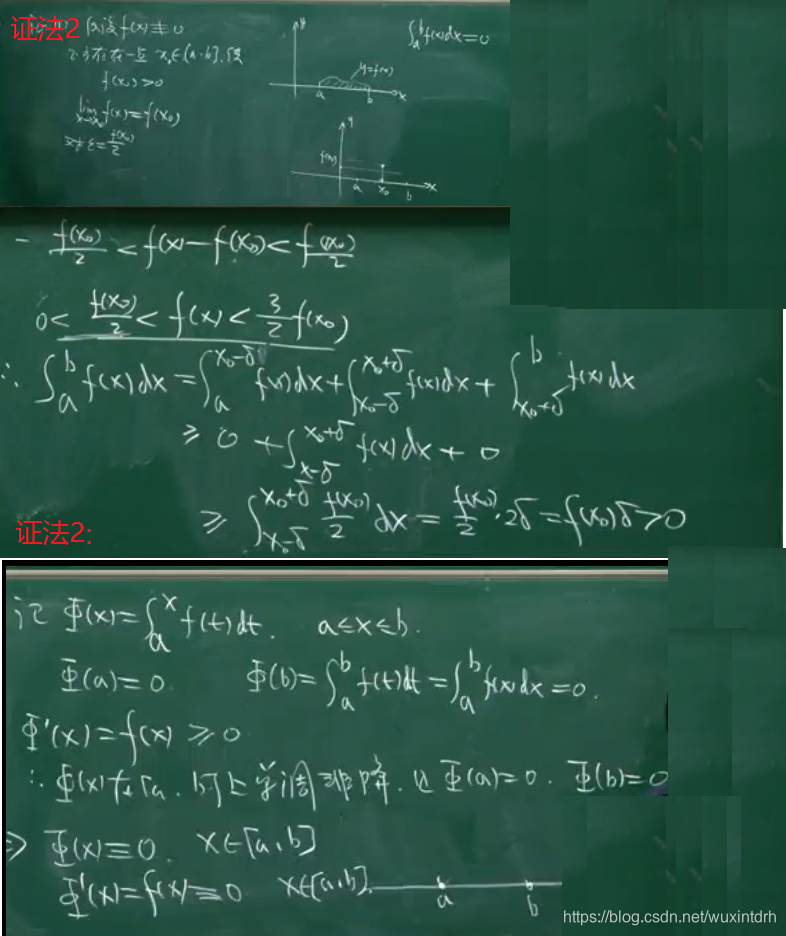 证法2
反设 f(x)≢0
不妨存在一点 x₀∈[a,b],使
f(x₀)>0
lim x→x₀ f(x)=f(x₀)
对 ε=f(x₀)/2
∫ₐᵇ f(x)dx=0
y
y=f(x)
a b x
y
f(x₀)
a x₀ b x
- f(x₀)/2 < f(x)-f(x₀) < f(x₀)/2
0< f(x₀)/2 < f(x) < 3/2 f(x₀)
∴ ∫ₐᵇ f(x)dx = ∫ₐ^(x₀-δ) f(x)dx + ∫_(x₀-δ)^(x₀+δ) f(x)dx + ∫_(x₀+δ)^b f(x)dx
≥ 0 + ∫_(x-δ)^(x₀+δ) f(x)dx + 0
≥ ∫_(x₀-δ)^(x₀+δ) f(x₀)/2 dx = f(x₀)/2 · 2δ = f(x₀)δ>0
证法2:
记 Φ(x)=∫ₐˣ f(t)dt. a≤x≤b.
Φ(a)=0. Φ(b)=∫ₐᵇ f(t)dt=∫ₐᵇ f(x)dx=0.
Φ'(x)=f(x)≥0
∴ Φ(x)在[a,b]上单调非降. 又 Φ(a)=0. Φ(b)=0
⇒ Φ(x)≡0. x∈[a,b]
Φ'(x)=f(x)≡0 x∈[a,b].
a b
https://blog.csdn.net/wuxintdrh